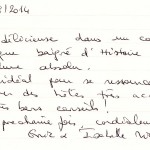 /2014
délicieuse dans un ca
que baigné d'Histoire
absolu.
idéal pour se ressource
des hôtes très ac
très bons conseils!
prochaine fois, cordialem
& Isabelle